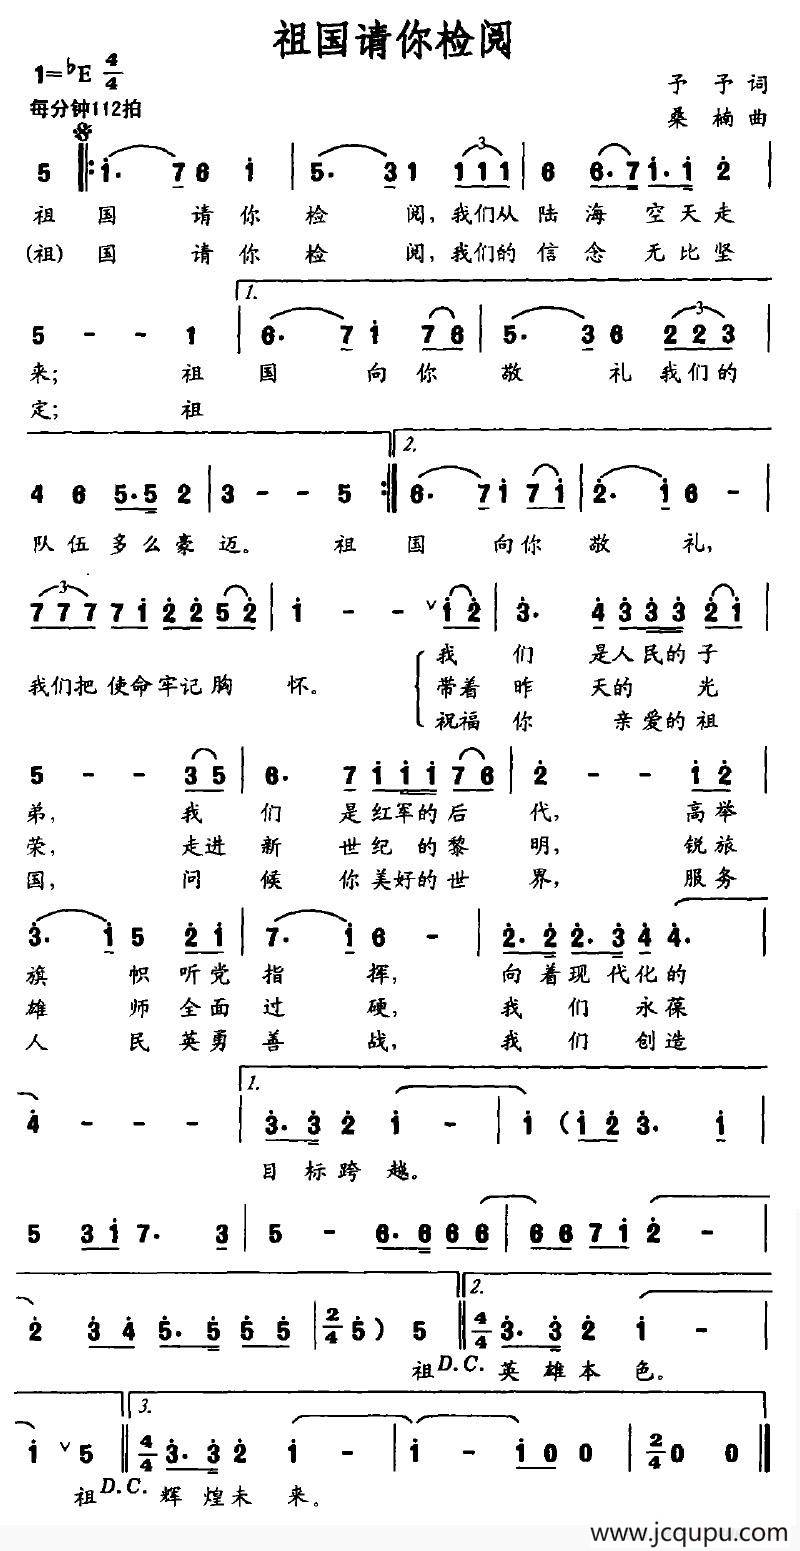 祖国请你检阅
1=♭E 4/4
予 予 词
每分钟112拍
桑 楠 曲
5 1. 7 6 1 5. 3 1 1 1 1 6 6. 7 1. 1 2
祖 国 请 你 检 阅, 我们从 陆 海 空天走
(祖) 国 请 你 检 阅, 我们的 信 念 无比坚
1.
5 - - 1 6. 7 1 7 6 5. 3 6 2 2 3
来; 祖 国 向 你 敬 礼 我们的
定; 祖
2.
4 6 5. 5 2 3 - - 5 6. 7 1 7 1 2. 1 6 -
队 伍 多么豪 迈。 祖 国 向你 敬 礼,
7 7 7 7 1 2 2 5 2 1 - - 1 2 3. 4 3 3 3 2 1
我 们 是人民的子
我们把 使命牢记胸 怀。 带着 昨 天的 光
祝福 你 亲爱的祖
5 - - 3 5 6. 7 1 1 1 7 6 2 - - 1 2
弟, 我 们 是红军的后 代, 高举
荣, 走进 新 世纪 的黎 明, 锐旅
国, 问 候 你美好的世 界, 服务
3. 1 5 2 1 7. 1 6 - 2. 2 2. 3 4 4.
旗 帜 听党 指 挥, 向 着现 代化的
雄 师 全面 过 硬, 我 们 永葆
人 民 英勇 善 战, 我 们 创造
1.
4 - - - 3. 3 2 1 - 1 (1 2 3. 1
目 标 跨 越。
5 3 1 7. 3 5 - 6. 6 6 6 6 6 7 1 2 -
2.
2 3 4 5. 5 5 5 2/4 5) 5 4/4 3. 3 2 1 -
祖 D.C. 英 雄 本 色。
3.
1 5 4/4 3. 3 2 1 - 1 - 1 0 0 2/4 0 0
祖 D.C. 辉 煌 未 来。
www.jcqupu.com